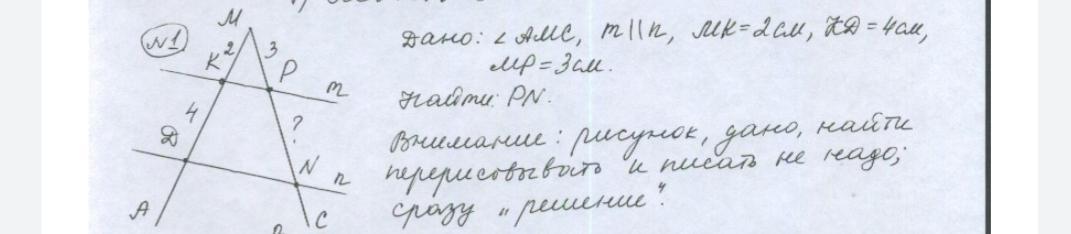 №1
M
K 2 3 P
m
4
Д ?
N n
A C
Дано: ∠ AMC, m||n, MK=2см, KD=4см,
MP=3см.
Найти: PN.
Внимание: рисунок, дано, найти
перерисовывать и писать не надо;
сразу „решение".